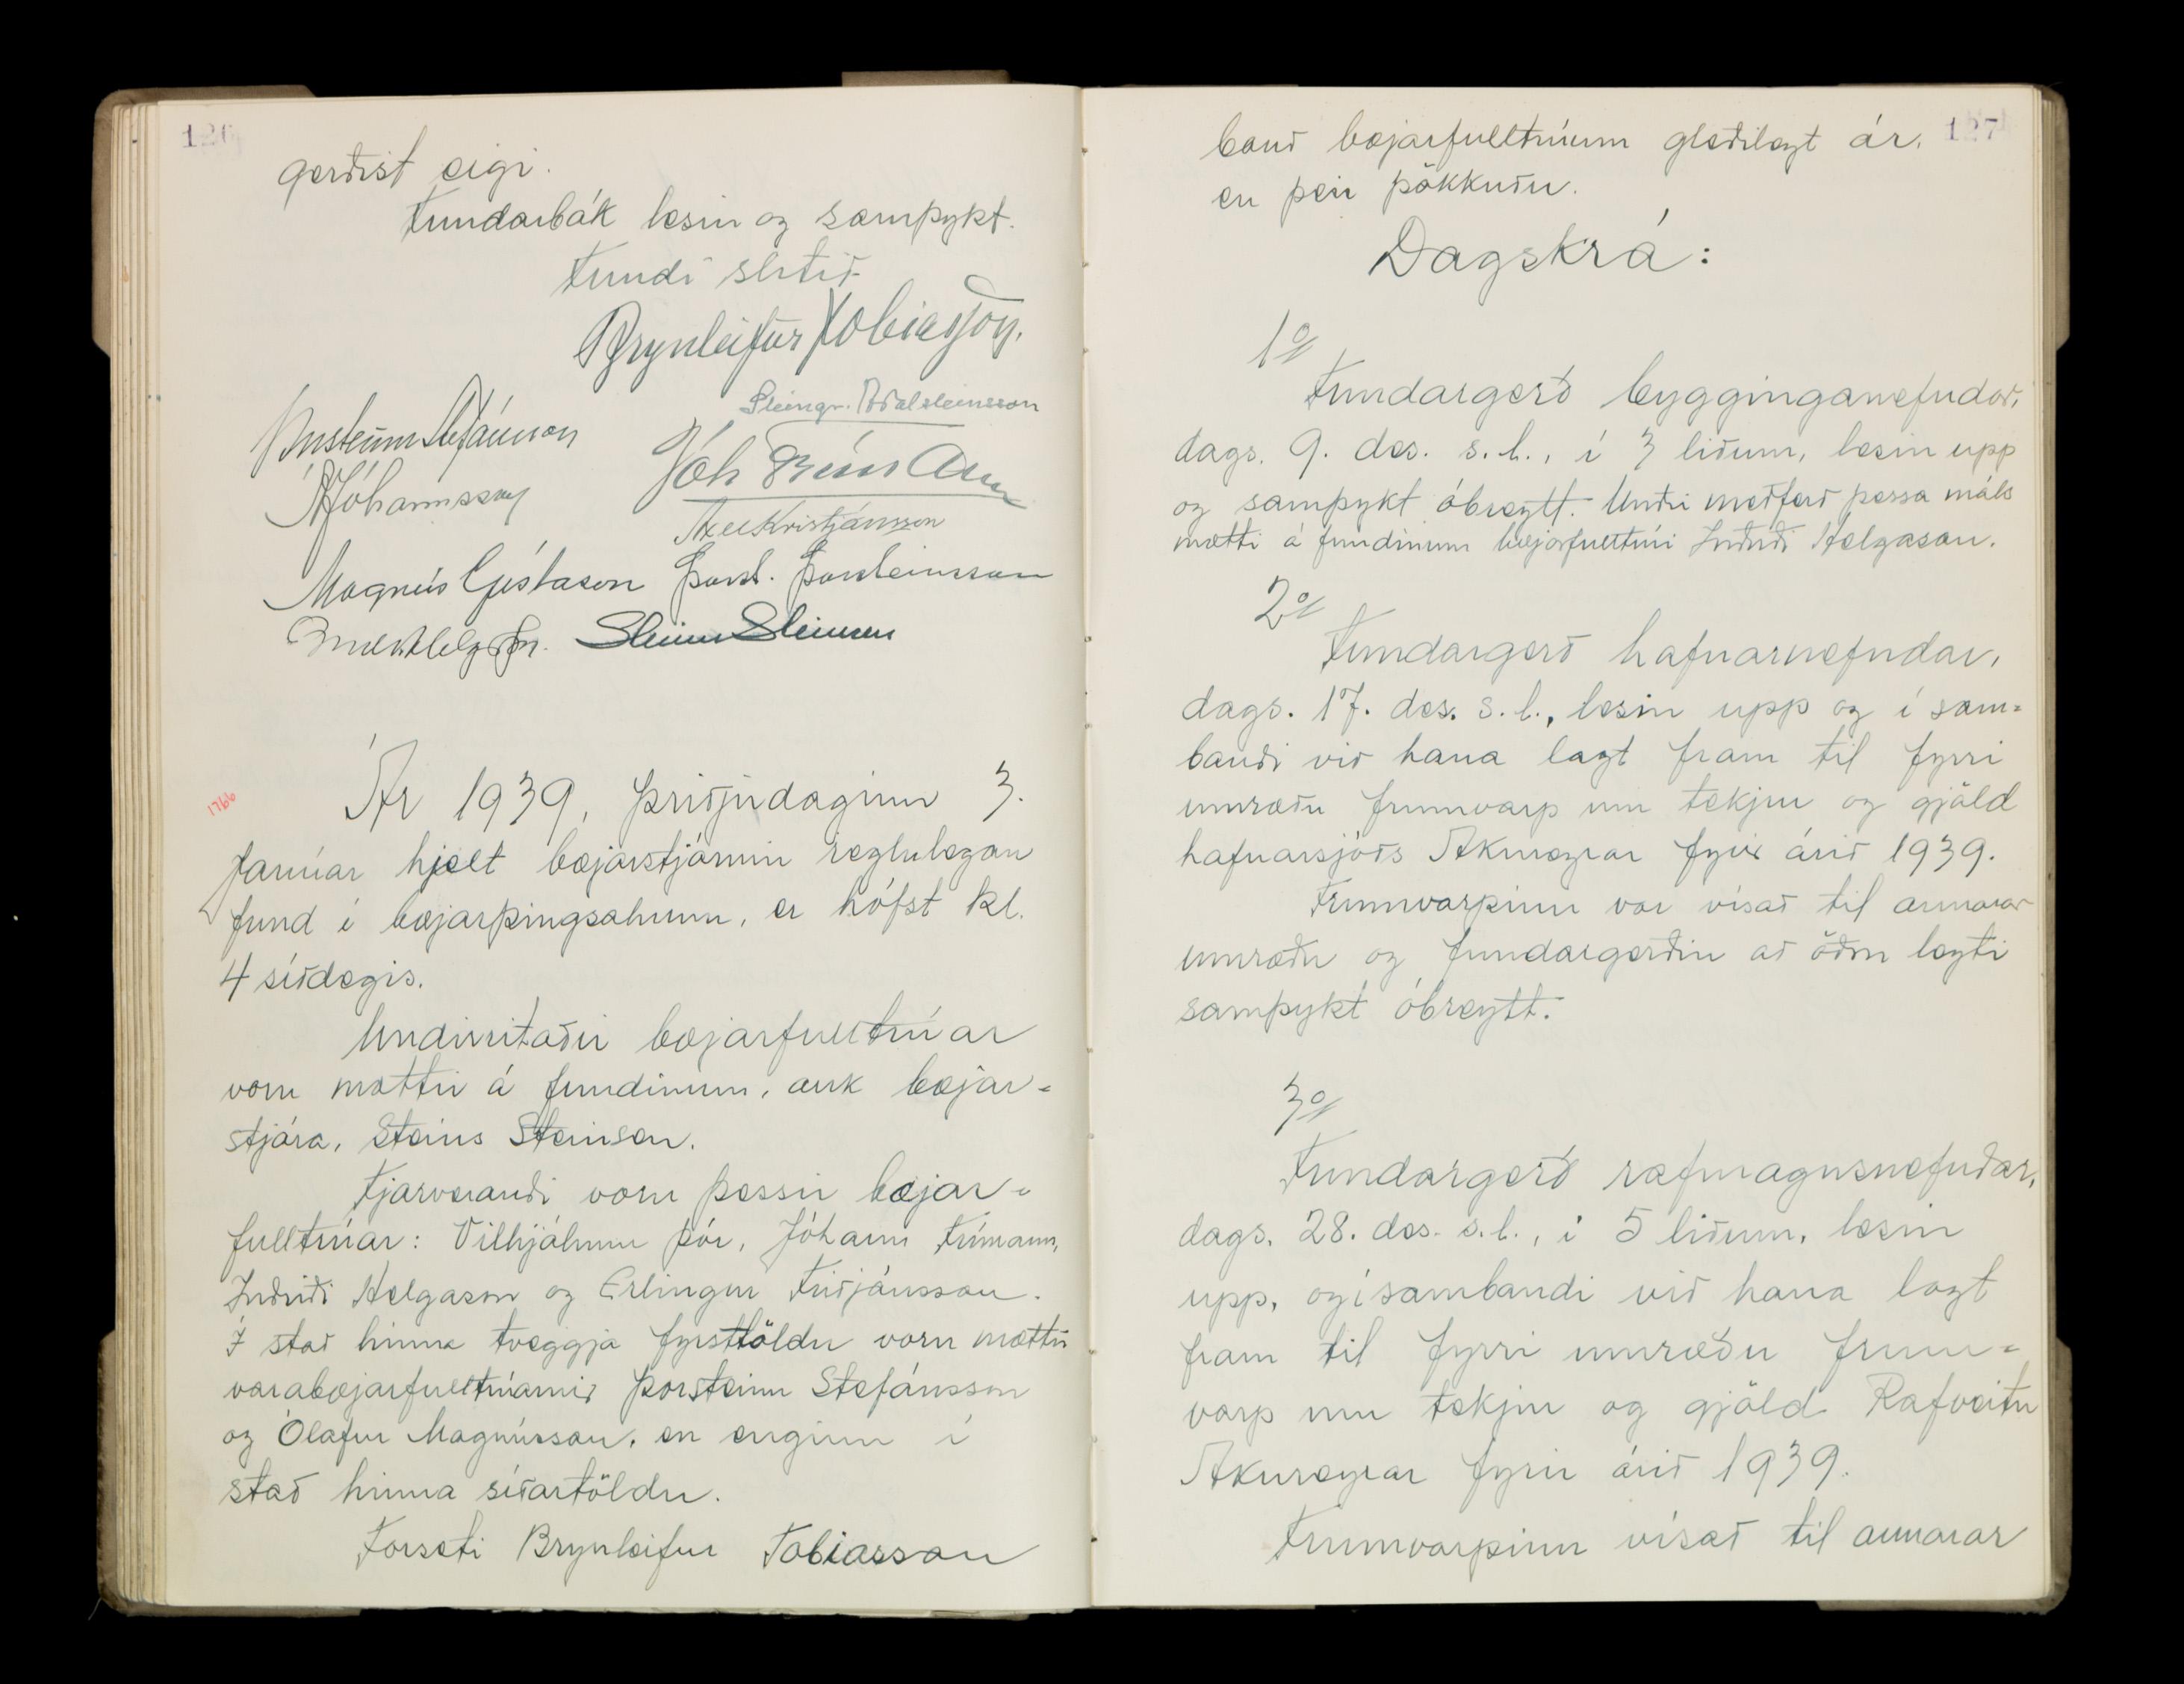 126
gerðist eigi.
Fundarbók lesin og samþykt.
Fundi slitið
Brynleifur Tobiasson.
Steingr. Aðalsteinsson
Þorsteinn Stefánsson
Jóh Frímann
Á Jóhannsson
Axel Kristjánsson
Magnús Gíslason Þorst. Þorsteinsson
Indr. Helgason. Steinn Steinsen
1766
Ár 1939, þriðjudaginn 3.
Janúar hjelt bæjarstjórnin reglulegan
fund í bæjarþingsalnum, er hófst kl.
4 síðdegis.
Undirritaðir bæjarfulltrúar
voru mættir á fundinum, auk bæjar-
stjóra, Steins Steinsen.
Fjarverandi voru þessir bæjar-
fulltrúar: Vilhjálmur Þór, Jóhann Frímann,
Indriði Helgason og Erlingur Friðjónsson.
Í stað hinna tveggja fyrsttöldu voru mættir
varabæjarfulltrúarnir Þorsteinn Stefánsson
og Ólafur Magnússon, en enginn í
stað hinna síðartöldu.
Forseti Brynleifur Tobiasson
127
bauð bæjarfulltrúum gleðilegt ár,
en þeir þökkuðu.
Dagskrá:
1º
Fundargerð bygginganefndar,
dags. 9. des. s.l., í 3 liðum, lesin upp
og samþykt óbreytt. Undir meðferð þessa máls
mætti á fundinum bæjarfulltrúi Indriði Helgason.
2º
Fundargerð hafnarnefndar,
dags. 17. des. s.l., lesin upp og í sam-
bandi við hana lagt fram til fyrri
umræðu frumvarp um tekjur og gjöld
hafnarsjóðs Akureyrar fyrir árið 1939.
Frumvarpinu var vísað til annarar
umræðu og fundargerðin að öðru leyti
samþykt óbreytt.
3º
Fundargerð rafmagnsnefndar,
dags. 28. des. s.l., í 5 liðum, lesin
upp, og í sambandi við hana lagt
fram til fyrri umræðu frum-
varp um tekjur og gjöld Rafveitu
Akureyrar fyrir árið 1939.
Frumvarpinu vísað til annarar